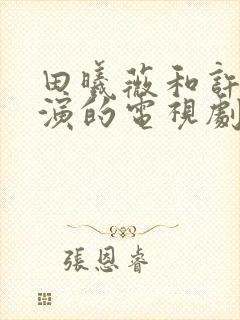 田曦薇和許
演的電視劇
張恩睿